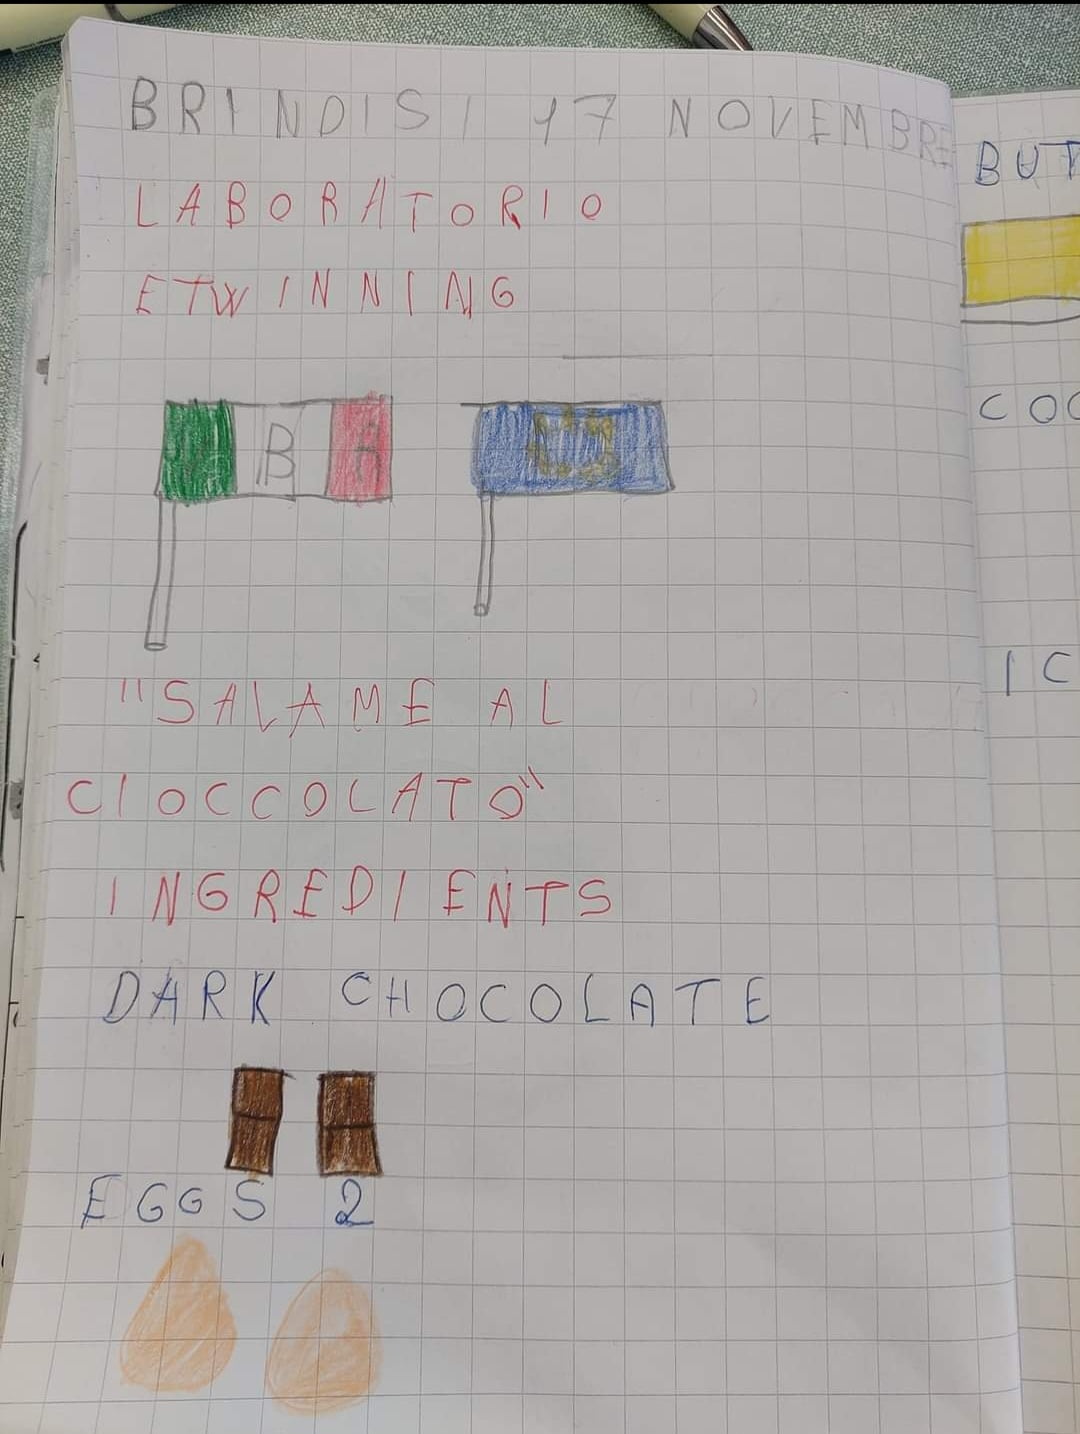 BRINDISI 17 NOVEMBRE
LABORATORIO
ETWINNING
B A
"SALAME AL
CIOCCOLATO"
INGREDIENTS
DARK CHOCOLATE
EGGS 2
BUT
COC
IC